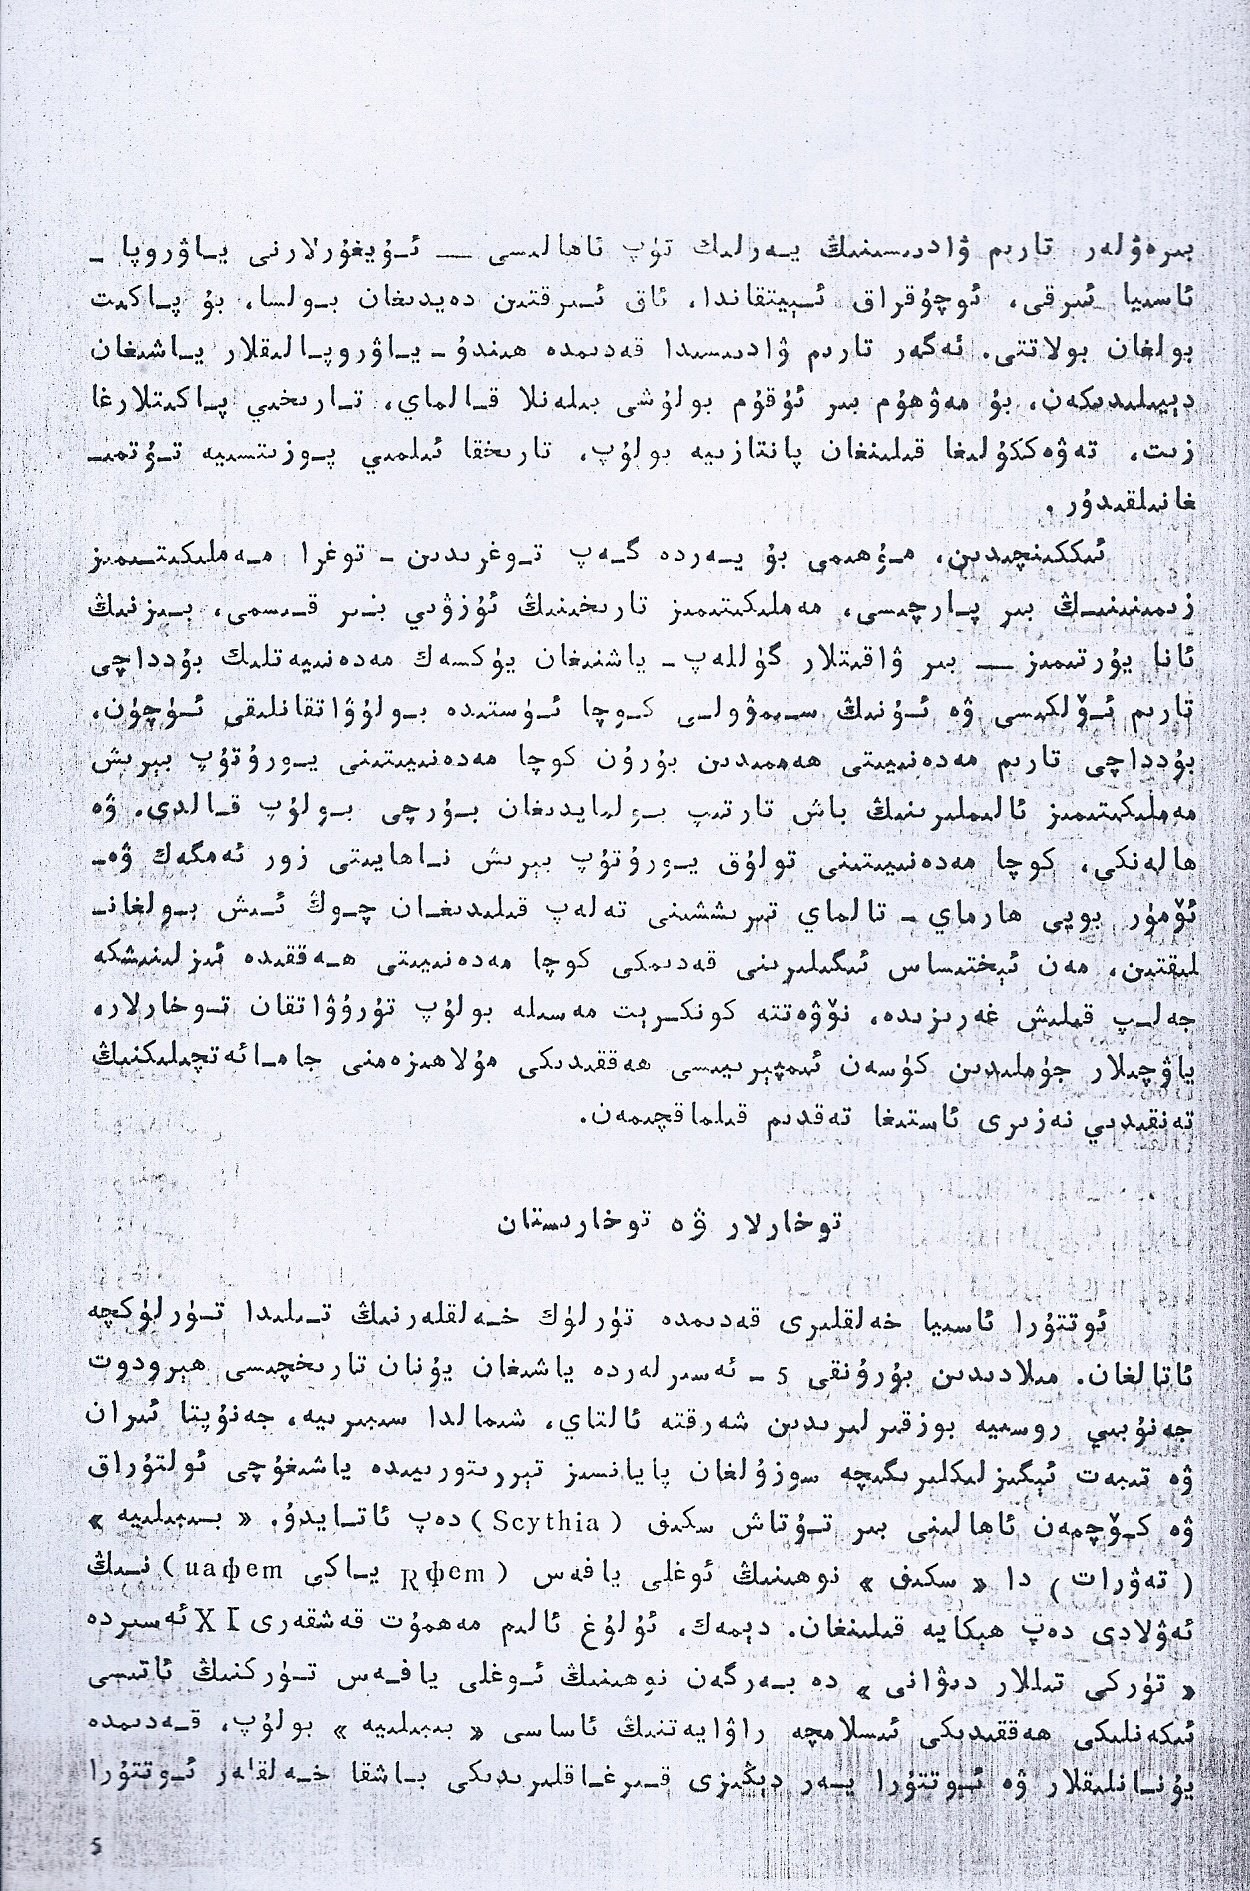 بىرەۋلەر تارىم ۋادىسىنىڭ يەرلىك تۈپ ئاھالىسى — ئۇيغۇرلارنى ياۋروپا -
ئاسىيا ئىرقى، ئوچۇقراق ئېيتقاندا، ئاق ئىرقتىن دەيدىغان بولسا، بۇ پاكىت
بولغان بولاتتى. ئەگەر تارىم ۋادىسىدا قەدىمدە ھىندۇ - ياۋروپالىقلار ياشىغان
دېيىلىدىكەن، بۇ مەۋھۇم بىر ئۇقۇم بولۇشى بىلەنلا قالماي، تارىخىي پاكىتلارغا
زىت، تەۋەككۈلىغا قىلىنغان پانتازىيە بولۇپ، تارىخقا ئىلمىي پوزىتسىيە تۇتمى-
غانلىقىدۇر.
ئىككىنچىدىن، مۇھىمى بۇ يەردە گەپ توغرىدىن - توغرا مەملىكىتىمىز
زىمىنىنىڭ بىر پارچىسى، مەملىكىتىمىز تارىخىنىڭ ئۇزۋىي بىر قىسمى، بىزنىڭ
ئانا يۇرتىمىز — بىر ۋاقىتلار گۈللەپ - ياشنىغان يۈكسەك مەدەنىيەتلىك بۇدداچى
تارىم ئۆلكىسى ۋە ئۇنىڭ سىمۋولى كوچا ئۈستىدە بولۇۋاتقانلىقى ئۈچۈن،
بۇدداچى تارىم مەدەنىيىتى ھەممىدىن بۇرۇن كوچا مەدەنىيىتىنى يورۇتۇپ بېرىش
مەملىكىتىمىز ئالىملىرىنىڭ باش تارتىپ بولمايدىغان بۇرچى بولۇپ قالدى. ۋە
ھالەنكى، كوچا مەدەنىيىتىنى تولۇق يورۇتۇپ بېرىش ناھايىتى زور ئەمگەك ۋە-
ئۆمۈر بويى ھارماي - تالماي تىرىشىشنى تەلەپ قىلىدىغان چوڭ ئىش بولغان-
لىقتىن، مەن ئىختىساس ئىگىلىرىنى قەدىمكى كوچا مەدەنىيىتى ھەققىدە ئىزلىنىشكە
جەلپ قىلىش غەرىزىدە، نۆۋەتتە كونكرېت مەسىلە بولۇپ تۇرۇۋاتقان توخارلار،
ياۋچىلار جۈملىدىن كۈسەن ئىمپېرىيىسى ھەققىدىكى مۇلاھىزەمنى جامائەتچىلىكنىڭ
تەنقىدىي نەزىرى ئاستىغا تەقدىم قىلماقچىمەن.
توخارلار ۋە توخارىستان
ئوتتۇرا ئاسىيا خەلقلىرى قەدىمدە تۈرلۈك خەلقلەرنىڭ تىلىدا تۈرلۈكچە
ئاتالغان. مىلادىدىن بۇرۇنقى 5 - ئەسىرلەردە ياشىغان يۇنان تارىخچىسى ھېرودوت
جەنۇبىي روسىيە بوزقىرلىرىدىن شەرقتە ئالتاي، شىمالدا سىبىرىيە، جەنۇپتا ئىران
ۋە تىبەت ئېگىزلىكلىرىگىچە سوزۇلغان پايانسىز تېررىتورىيىدە ياشىغۇچى ئولتۇراق
ۋە كۆچمەن ئاھالىنى بىر تۇتاش سكىف (Scythia) دەپ ئاتايدۇ. «بىبىلىيە»
(تەۋرات) دا «سكىف» نوھىنىڭ ئوغلى يافەس (Rфem ياكى uaфem) نىڭ
ئەۋلادى دەپ ھېكايە قىلىنغان. دېمەك، ئۇلۇغ ئالىم مەھمۇت قەشقەرى XI ئەسىردە
«تۈركى تىللار دىۋانى» دە بەرگەن نوھىنىڭ ئوغلى يافەس تۈركنىڭ ئاتىسى
ئىكەنلىكى ھەققىدىكى ئىسلامچە راۋايەتنىڭ ئاساسى «بىبىلىيە» بولۇپ، قەدىمدە
يۇنانلىقلار ۋە ئوتتۇرا يەر دېڭىزى قىرغاقلىرىدىكى باشقا خەلقلەر ئوتتۇرا
5